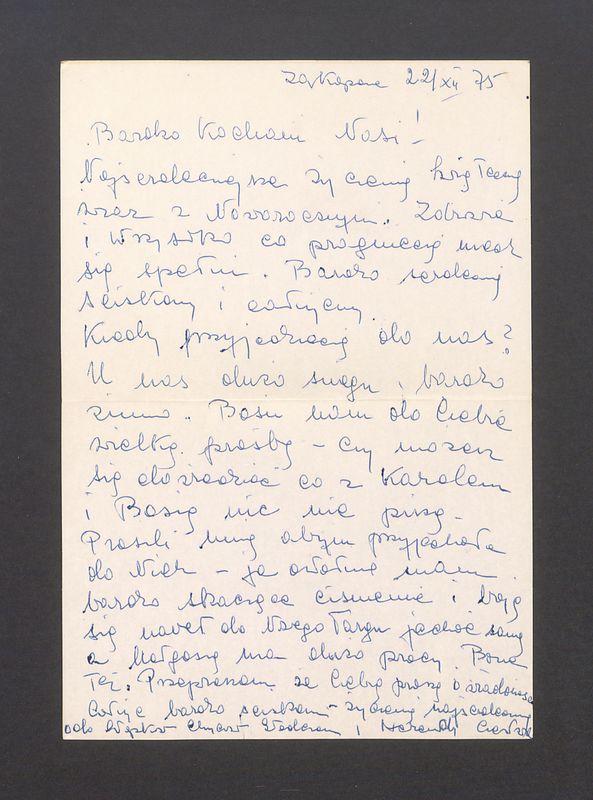 Zakopane 22/XII 75
Bardzo Kochani Nasi!
Najserdeczniejsze życzenia świąteczne
wraz z Noworocznymi. Zdrowia
i wszystko co pragniecie niech
się spełni. Bardzo serdecznie
ściskamy i całujemy
Kiedy przyjedziecie do nas?
U nas dużo śniegu i bardzo
zimno. Basiu mam do Ciebie
wielką prośbę – czy możesz
się dowiedzieć co z Karolem
i Basią nic nie piszą.
Prosili mnie abym przyjechała
do Nich – ja ostatnio mam
bardzo skaczące ciśnienie i boję
się nawet do Nowego Targu jechać sama
a Małgosia ma dużo pracy.
Też. Przepraszam że Ciebie proszę o wiadomość
Całuję bardzo ściskam – życzenia najserdeczniejsze
od i